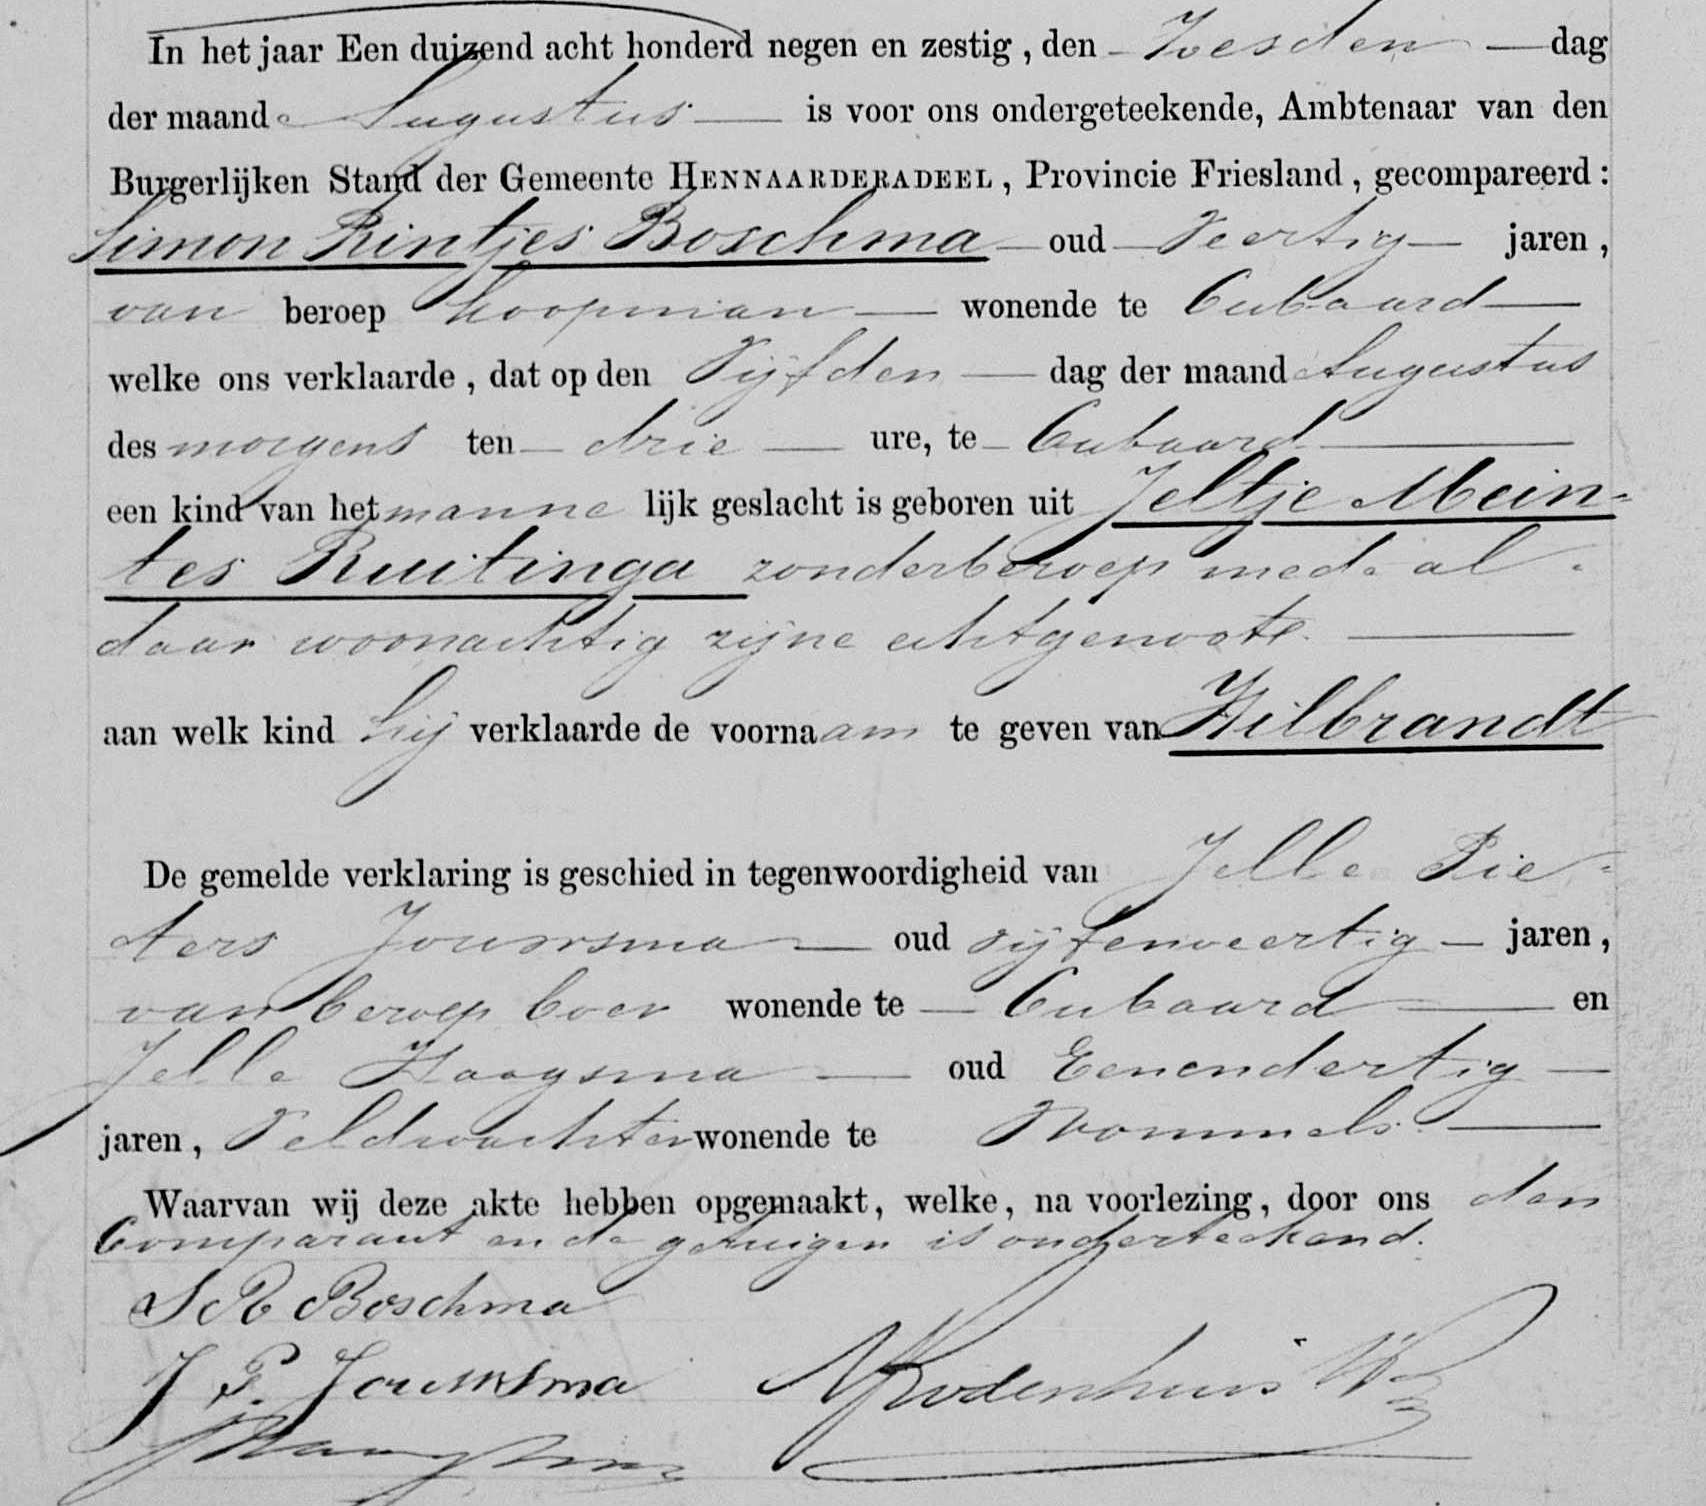 In het jaar Een duizend acht honderd negen en zestig, den Zesden dag
der maand Augustus is voor ons ondergeteekende, Ambtenaar van den
Burgerlijken Stand der Gemeente HENNAARDERADEEL, Provincie Friesland, gecompareerd:
Simon Rintjes Boschma oud Veertig jaren,
van beroep koopman wonende te Cubaard
welke ons verklaarde, dat op den Vijfden dag der maand Augustus
des morgens ten drie ure, te Cubaard
een kind van het manne lijk geslacht is geboren uit Jeltje Mein-
tes Ruitinga zonder beroep mede al-
daar woonachtig zijne echtgenoote.
aan welk kind hij verklaarde de voornaam te geven van Hilbrandt
De gemelde verklaring is geschied in tegenwoordigheid van Jelle Pie-
ters Jouwsma oud vijfenveertig jaren,
van beroep boer wonende te Cubaard en
Jelle Haagsma oud Eenendertig
jaren, Veldwachter wonende te Wommels
Waarvan wij deze akte hebben opgemaakt, welke, na voorlezing, door ons den
Comparant en de getuigen is onderteekend.
S R Boschma
J P. Jouwsma
Rodenhuis
JHaagsma